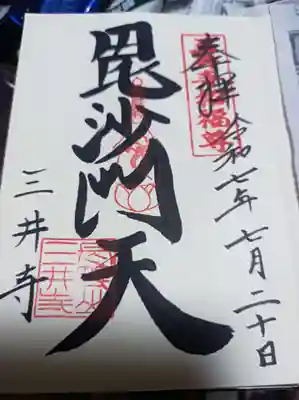 奉拝
令和七年七月二十日
毘沙門天
三井寺